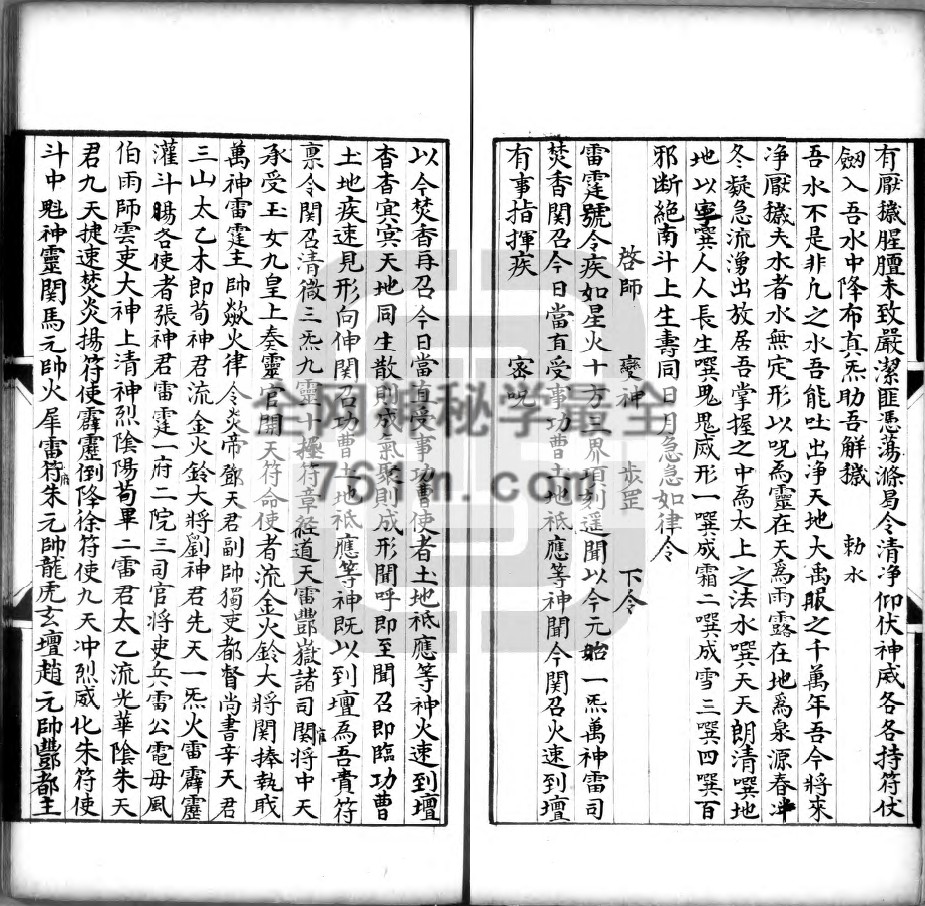 有厭穢腥膻未致嚴潔匪憑蕩滌曷令清净仰伏神威各各持符仗
劔入吾水中降布真炁助吾解穢　勅水
吾水不是非凡之水吾能吐出净天地大禹服之千萬年吾今將來
净厭穢夫水者水無定形以呪為靈在天為雨露在地為泉源春冲
冬凝急流湧出放居吾掌握之中為太上之法水噀天天朗清噀地
地以寧噀人人長生噀鬼鬼威形一噀成霜二噀成雪三噀四噀百
邪断絕南斗上生壽同日月急急如律令
啓師　變神　步罡　下令
雷霆號令疾如星火十方三界頃刻遥聞以今元始一炁萬神雷司
焚香関召今日當直受事功曹土地祗應等神聞今関召火速到壇
有事指揮疾　密呪
以今焚香再召今日當直受事功曹使者土地祗應等神火速到壇
杳杳㝠㝠天地同生散則成氣聚則成形聞呼即至聞召即臨功曹
土地疾速見形向伸関召功曹土地祗應等神既以到壇為吾賫符
禀令関召清微三炁九靈十極符章經道天雷酆嶽諸司関將中天
承受玉女九皇上奏靈官開天符命使者流金火鈴大將関捧執戝
萬神雷霆主帥歘火律令炎帝鄧天君副帥獨吏都督尚書辛天君
三山太乙木郎荀神君流金火鈴大將劉神君先天一炁火雷霹靂
灌斗暘各使者張神君雷霆一府二院三司官將吏兵雷公電母風
伯雨師雲吏大神上清神烈陰陽荀畢二雷君太乙流光華陰朱天
君九天捷速焚炎揚符使霹靂倒降徐符使九天冲烈威化朱符使
斗中魁神靈関馬元帥火犀雷府朱元帥龍虎玄壇趙元帥酆都主
全网神秘学最全